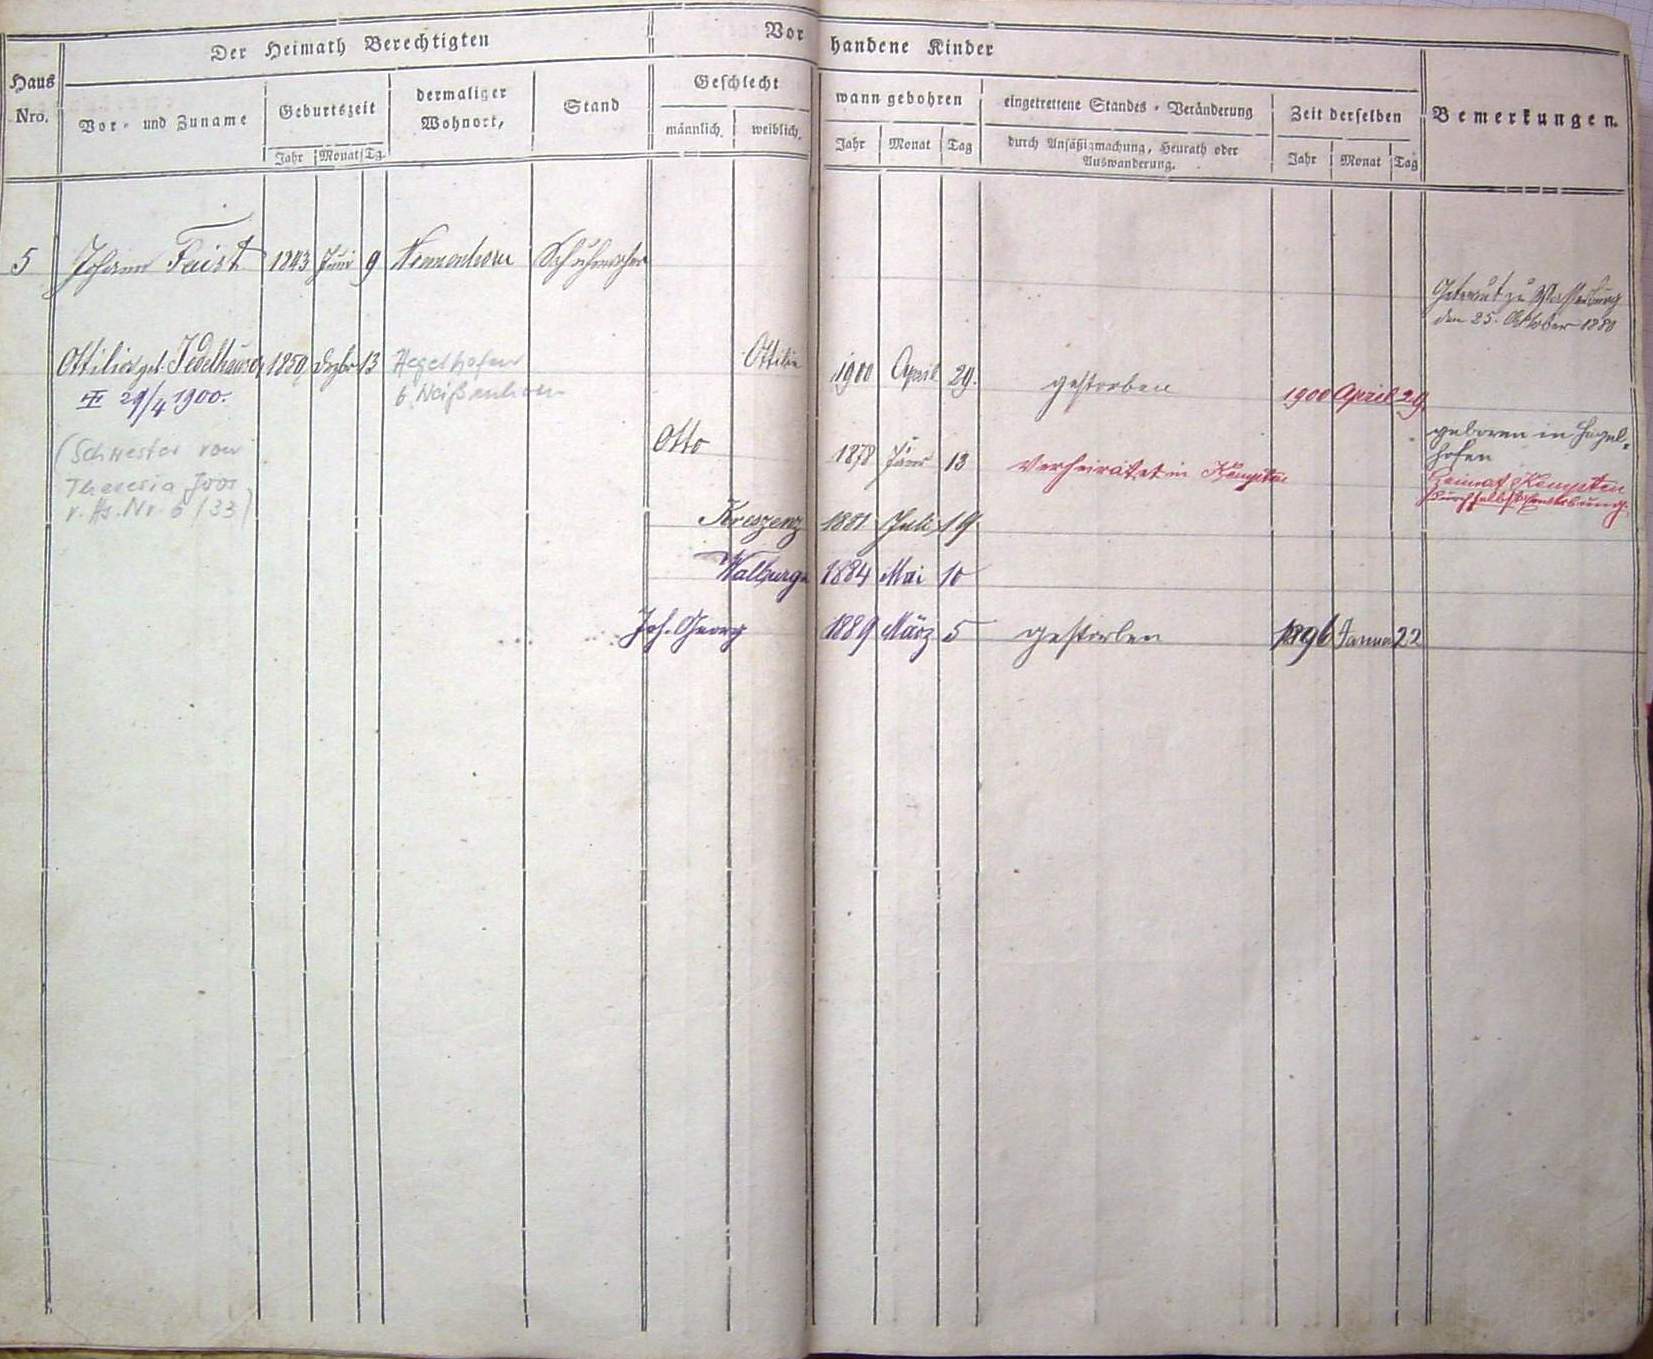 Der Heimath Berechtigten
Vorhandene Kinder
Haus Nro.
Vor- und Zuname
Geburtszeit
Jahr Monat Tg.
dermaliger Wohnort,
Stand
Geschlecht
männlich. weiblich.
wann gebohren
Jahr Monat Tag
eingetrettene Standes-Veränderung
durch Ansäßigmachung, Heurath oder
Auswanderung.
Zeit derselben
Jahr Monat Tag
Bemerkungen.
5 Johann Faist 1843 Juni 9 Nonnenhorn Schuhmacher
Getraut zu Wasserburg
den 25. Oktober 1880
Ottilia geb. 1850 Dezbr 13 Hegelhofen Ottilie 1900 April 29. gestorben 1900 April 29
29/4 1900.
b. Weißenhorn
(Schwester von
Theresia Joos
v. Hs. Nr. 6 /33)
Otto 1878 13 Verheiratet in Kempten
geboren in Hegel-
hofen
Heimat Kempten
durch
Kreszenz 1881 Juli 19
Walburga 1884 Mai 10
Joh. Georg 1889 März 5 gestorben 1896 Januar 22